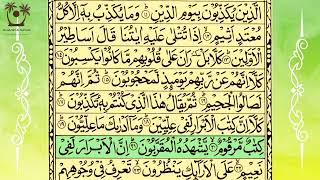 الَّذِيْنَ يُكَذِّبُوْنَ بِيَوْمِ الدِّيْنِ ۝ وَمَا يُكَذِّبُ بِهٖۤ اِلَّا كُلُّ
مُعْتَدٍ اَثِيْمٍ ۝ اِذَا تُتْلٰى عَلَيْهِ اٰيٰتُنَا قَالَ اَسَاطِيْرُ
الْاَوَّلِيْنَ ۝ كَلَّا بَلْ رَانَ عَلٰى قُلُوْبِهِمْ مَّا كَانُوْا يَكْسِبُوْنَ ۝
كَلَّاۤ اِنَّهُمْ عَنْ رَّبِّهِمْ يَوْمَئِذٍ لَّمَحْجُوْبُوْنَ ۝ ثُمَّ اِنَّهُمْ
لَصَالُوا الْجَحِيْمِ ۝ ثُمَّ يُقَالُ هٰذَا الَّذِيْ كُنْتُمْ بِهٖ تُكَذِّبُوْنَ ۝
كَلَّاۤ اِنَّ كِتٰبَ الْاَبْرَارِ لَفِيْ عِلِّيِّيْنَ ۝ وَمَاۤ اَدْرٰىكَ مَا عِلِّيُّوْنَ ۝
كِتٰبٌ مَّرْقُوْمٌ ۝ يَّشْهَدُهُ الْمُقَرَّبُوْنَ ۝ اِنَّ الْاَبْرَارَ لَفِيْ
نَعِيْمٍ ۝ عَلَى الْاَرَآئِكِ يَنْظُرُوْنَ ۝ تَعْرِفُ فِيْ وُجُوْهِهِمْ